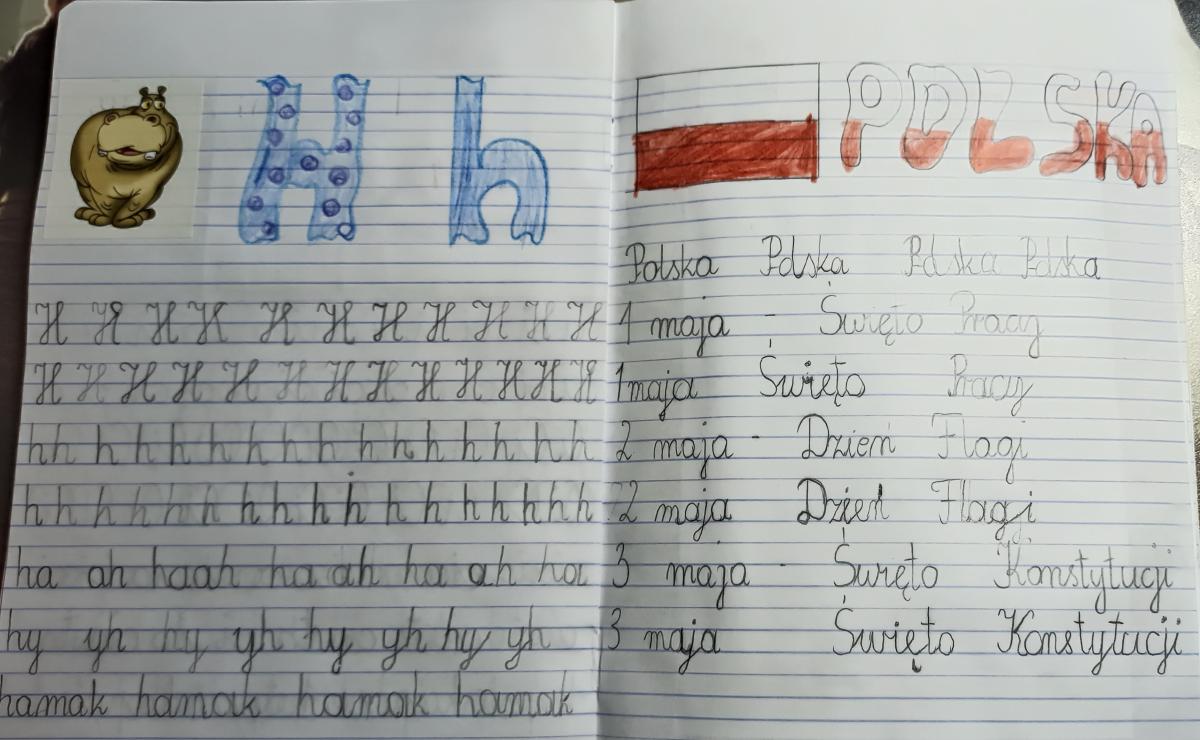 H h
H H H H H H H H H H H
H H H H H H H H H H H H
h h h h h h h h h h h h h h h
h h h h h h h h h h h h h h h
ha ah haah ha ah ha ah ha
hy yh hy yh hy yh hy yh
hamak hamak hamak hamak
POLSKA
Polska Polska Polska Polska
1 maja - Święto Pracy
1 maja Święto Pracy
2 maja - Dzień Flagi
2 maja Dzień Flagi
3 maja - Święto Konstytucji
3 maja Święto Konstytucji